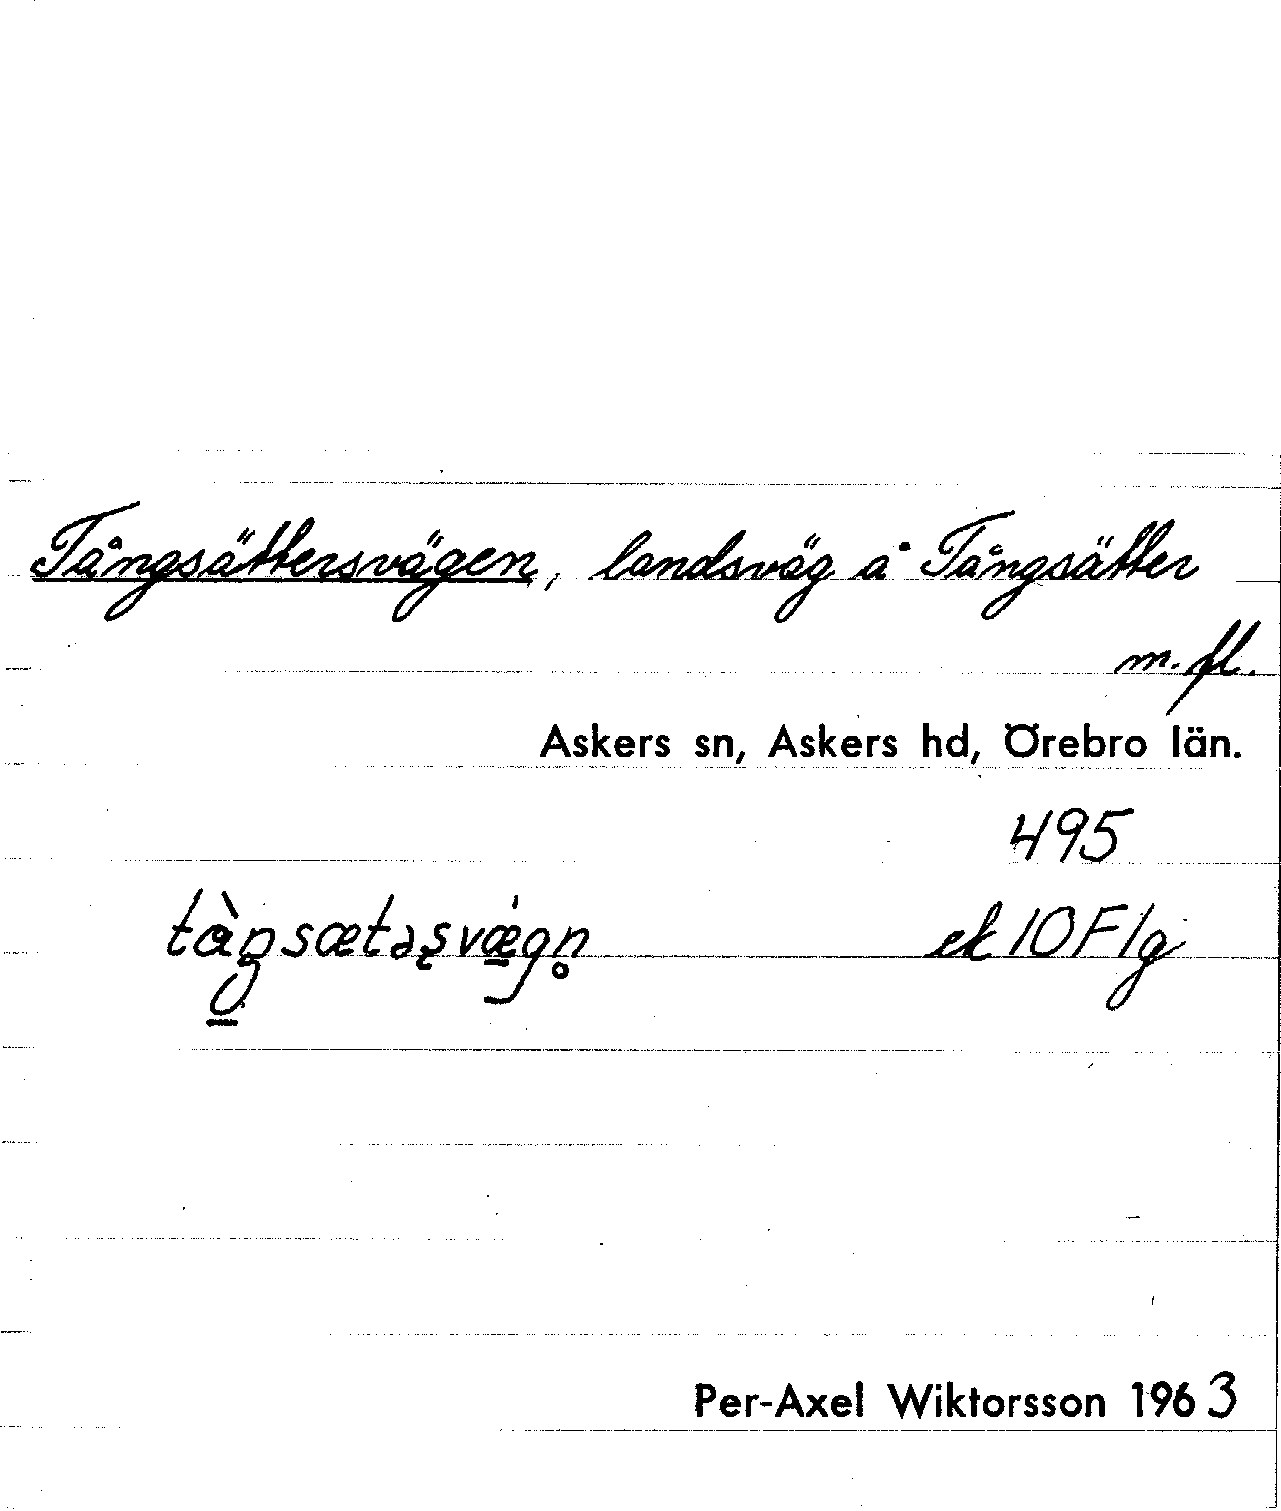 Tångsättersvägen, landsväg å Tångsätter
m. fl.
Askers sn, Askers hd, Örebro län.
495
ek 10F1g
Per-Axel Wiktorsson 1963